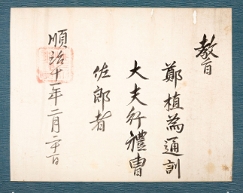 敎旨
鄭植為通訓
大夫行禮曹
佐郎者
順治十一年二月日